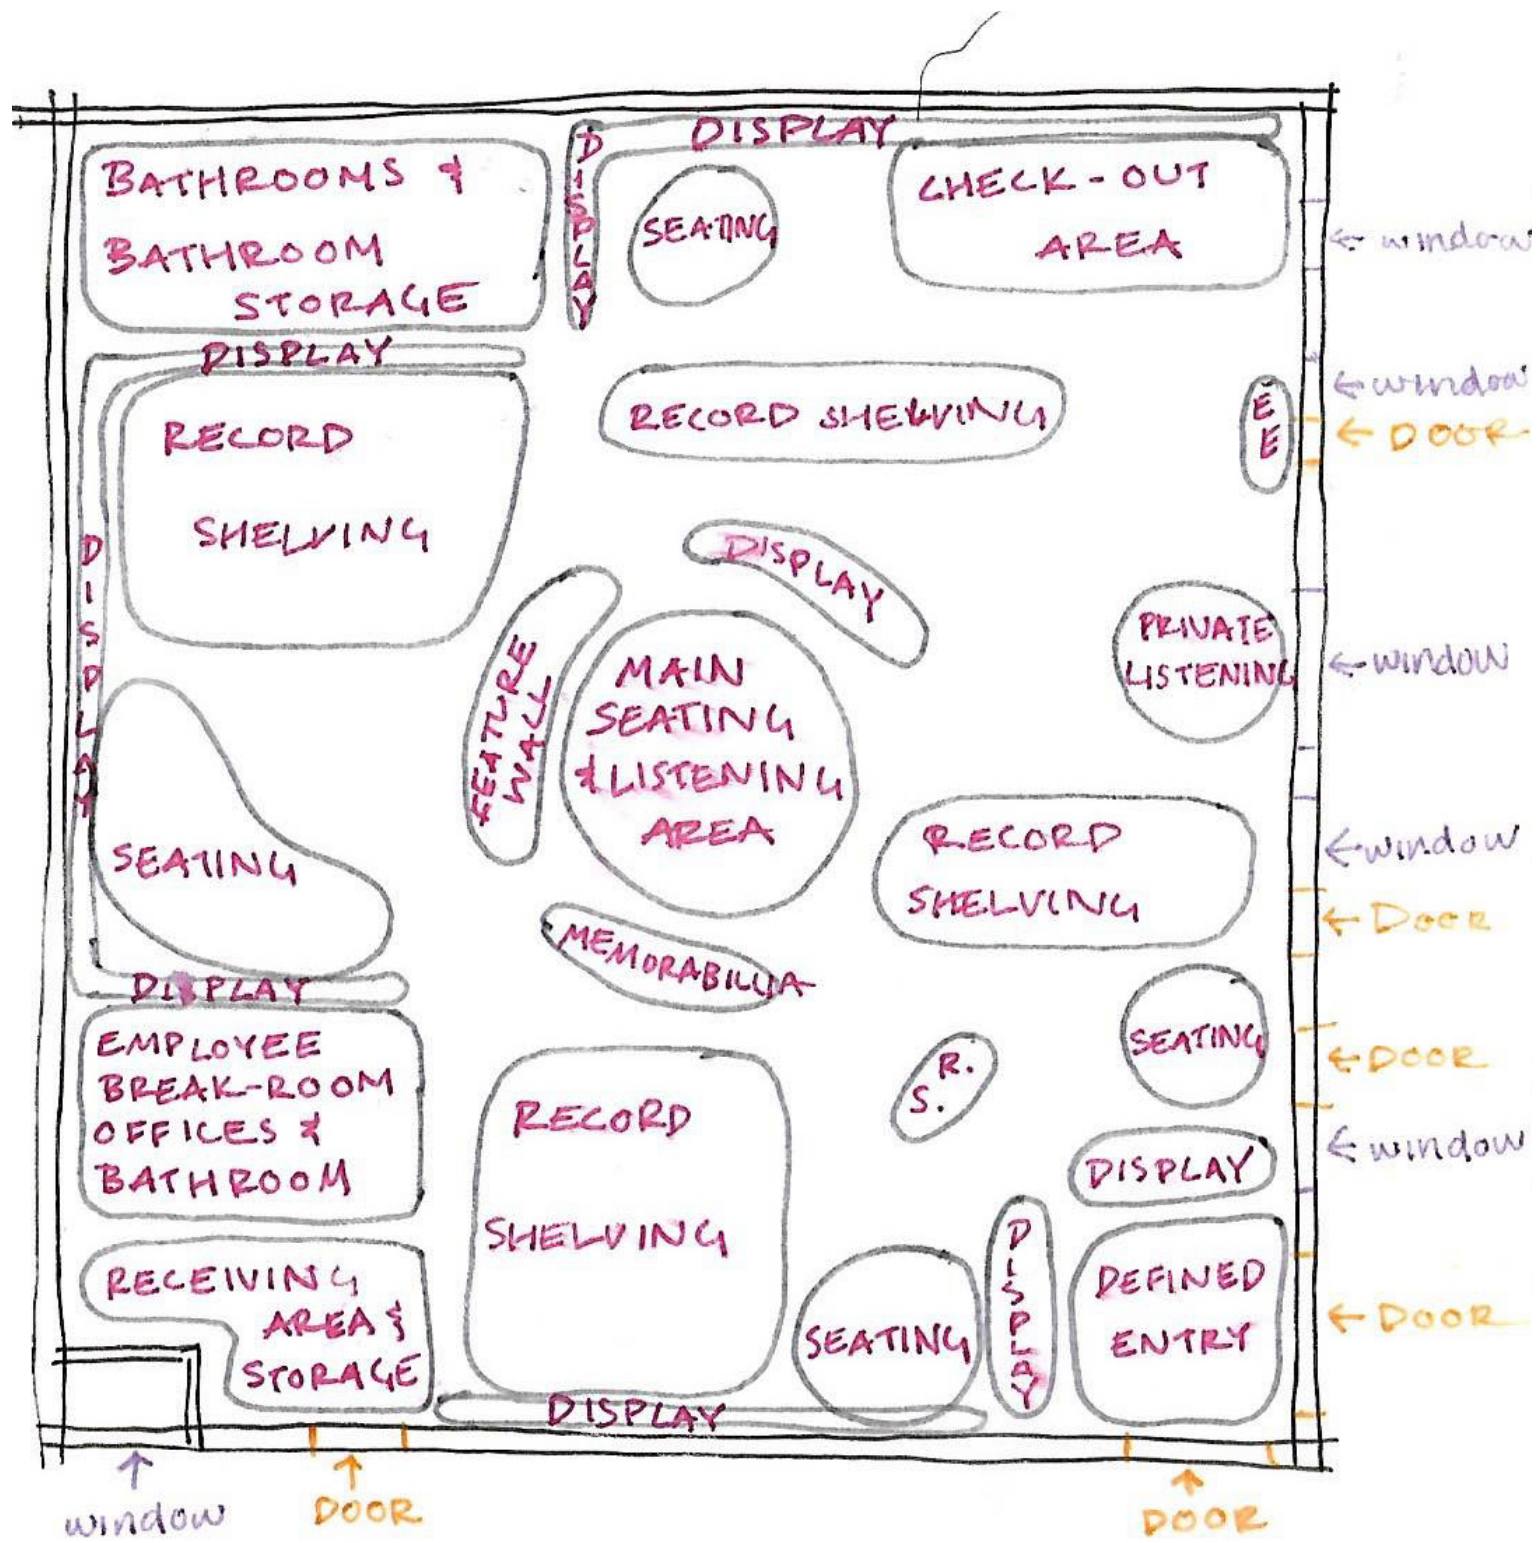 DISPLAY
DISPLAY
BATHROOMS &
BATHROOM
STORAGE
SEATING
CHECK-OUT
AREA
←window
DISPLAY
RECORD
SHELVING
RECORD SHELVING
EE
←window
←DOOR
DISPLAY
DISPLAY
FEATURE
WALL
MAIN
SEATING
& LISTENING
AREA
PRIVATE
LISTENING
←window
SEATING
RECORD
SHELVING
←window
←DOOR
MEMORABILLIA
DISPLAY
EMPLOYEE
BREAK-ROOM
OFFICES &
BATHROOM
RECORD
SHELVING
R.
S.
SEATING
←DOOR
DISPLAY
←window
RECEIVING
AREA &
STORAGE
SEATING
DISPLAY
DEFINED
ENTRY
←DOOR
DISPLAY
↑
window
↑
DOOR
↑
DOOR